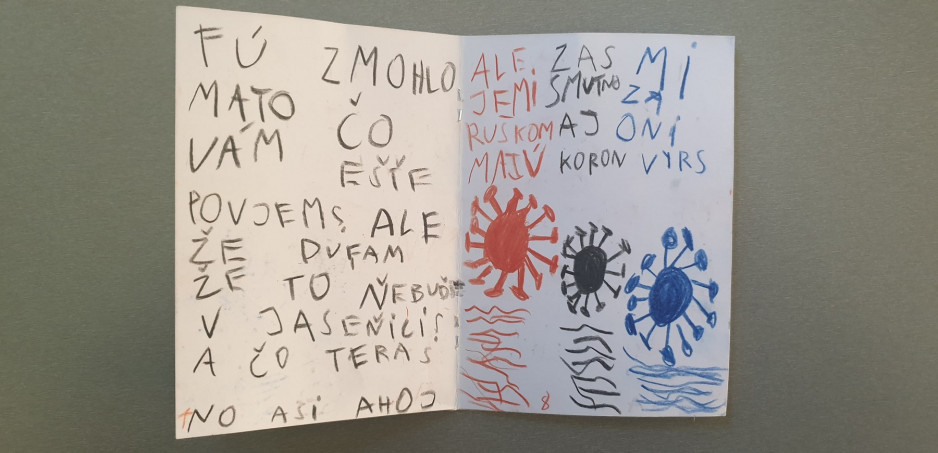 FÚ ZMOHLO
MATO
VÁM ČO
EŠŤE
POVJEMS ALE
ŽE DUFAM
ŽE TO ŇEBUĎE
V JASEŇILIS
A ČO TERAS
NO AŠI AHOJ
ALE ZAS MI
JEMI SMUTNO ZA
RUSKOM AJ ONI
MAJÚ KORON VYRS
8